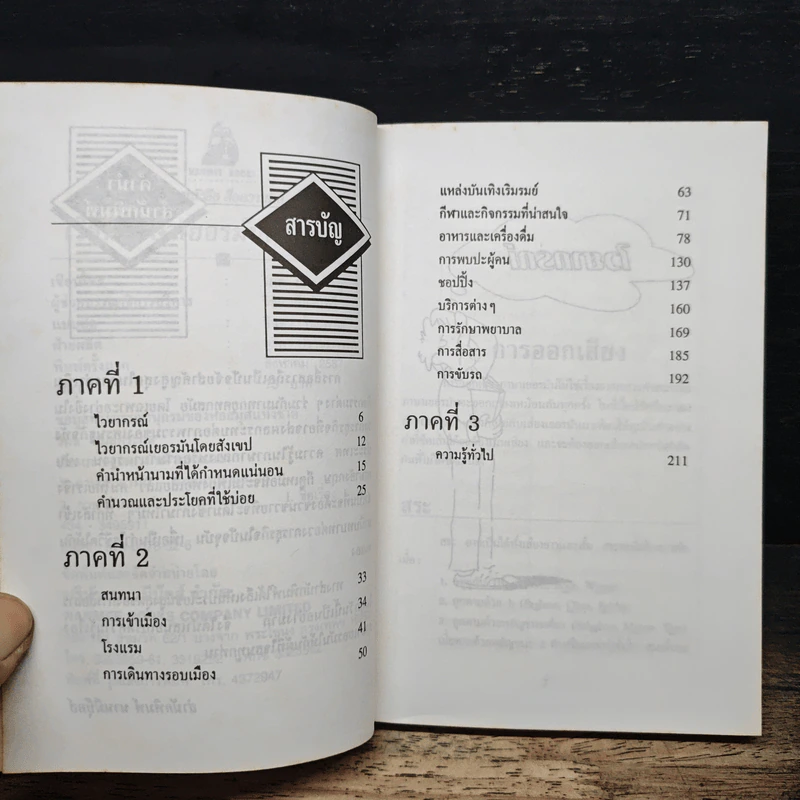 สารบัญ
ภาคที่ 1
ไวยากรณ์ 6
ไวยากรณ์เยอรมันโดยสังเขป 12
คำนำหน้านามที่ได้กำหนดแน่นอน 15
คำนวณและประโยคที่ใช้บ่อย 25
ภาคที่ 2
สนทนา 33
การเข้าเมือง 34
โรงแรม 41
การเดินทางรอบเมือง 50
แหล่งบันเทิงเริงรมย์ 63
กีฬาและกิจกรรมที่น่าสนใจ 71
อาหารและเครื่องดื่ม 78
การพบปะผู้คน 130
ชอปปิ้ง 137
บริการต่าง ๆ 160
การรักษาพยาบาล 169
การสื่อสาร 185
การขับรถ 192
ภาคที่ 3
ความรู้ทั่วไป 211